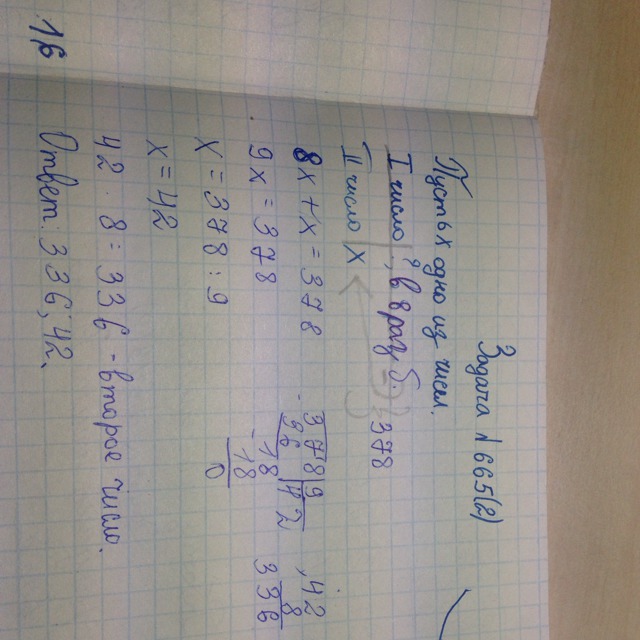 Задача №665(2)
Пусть х одно из чисел.
I число | ?, в 8 раз б. } 378
II число | х
8х + х = 378
9х = 378
х = 378 : 9
х = 42
42 · 8 = 336 - второе число.
Ответ: 336, 42.
- 378 | 9
36 | 42
- 18
18
0
42
8
336
16